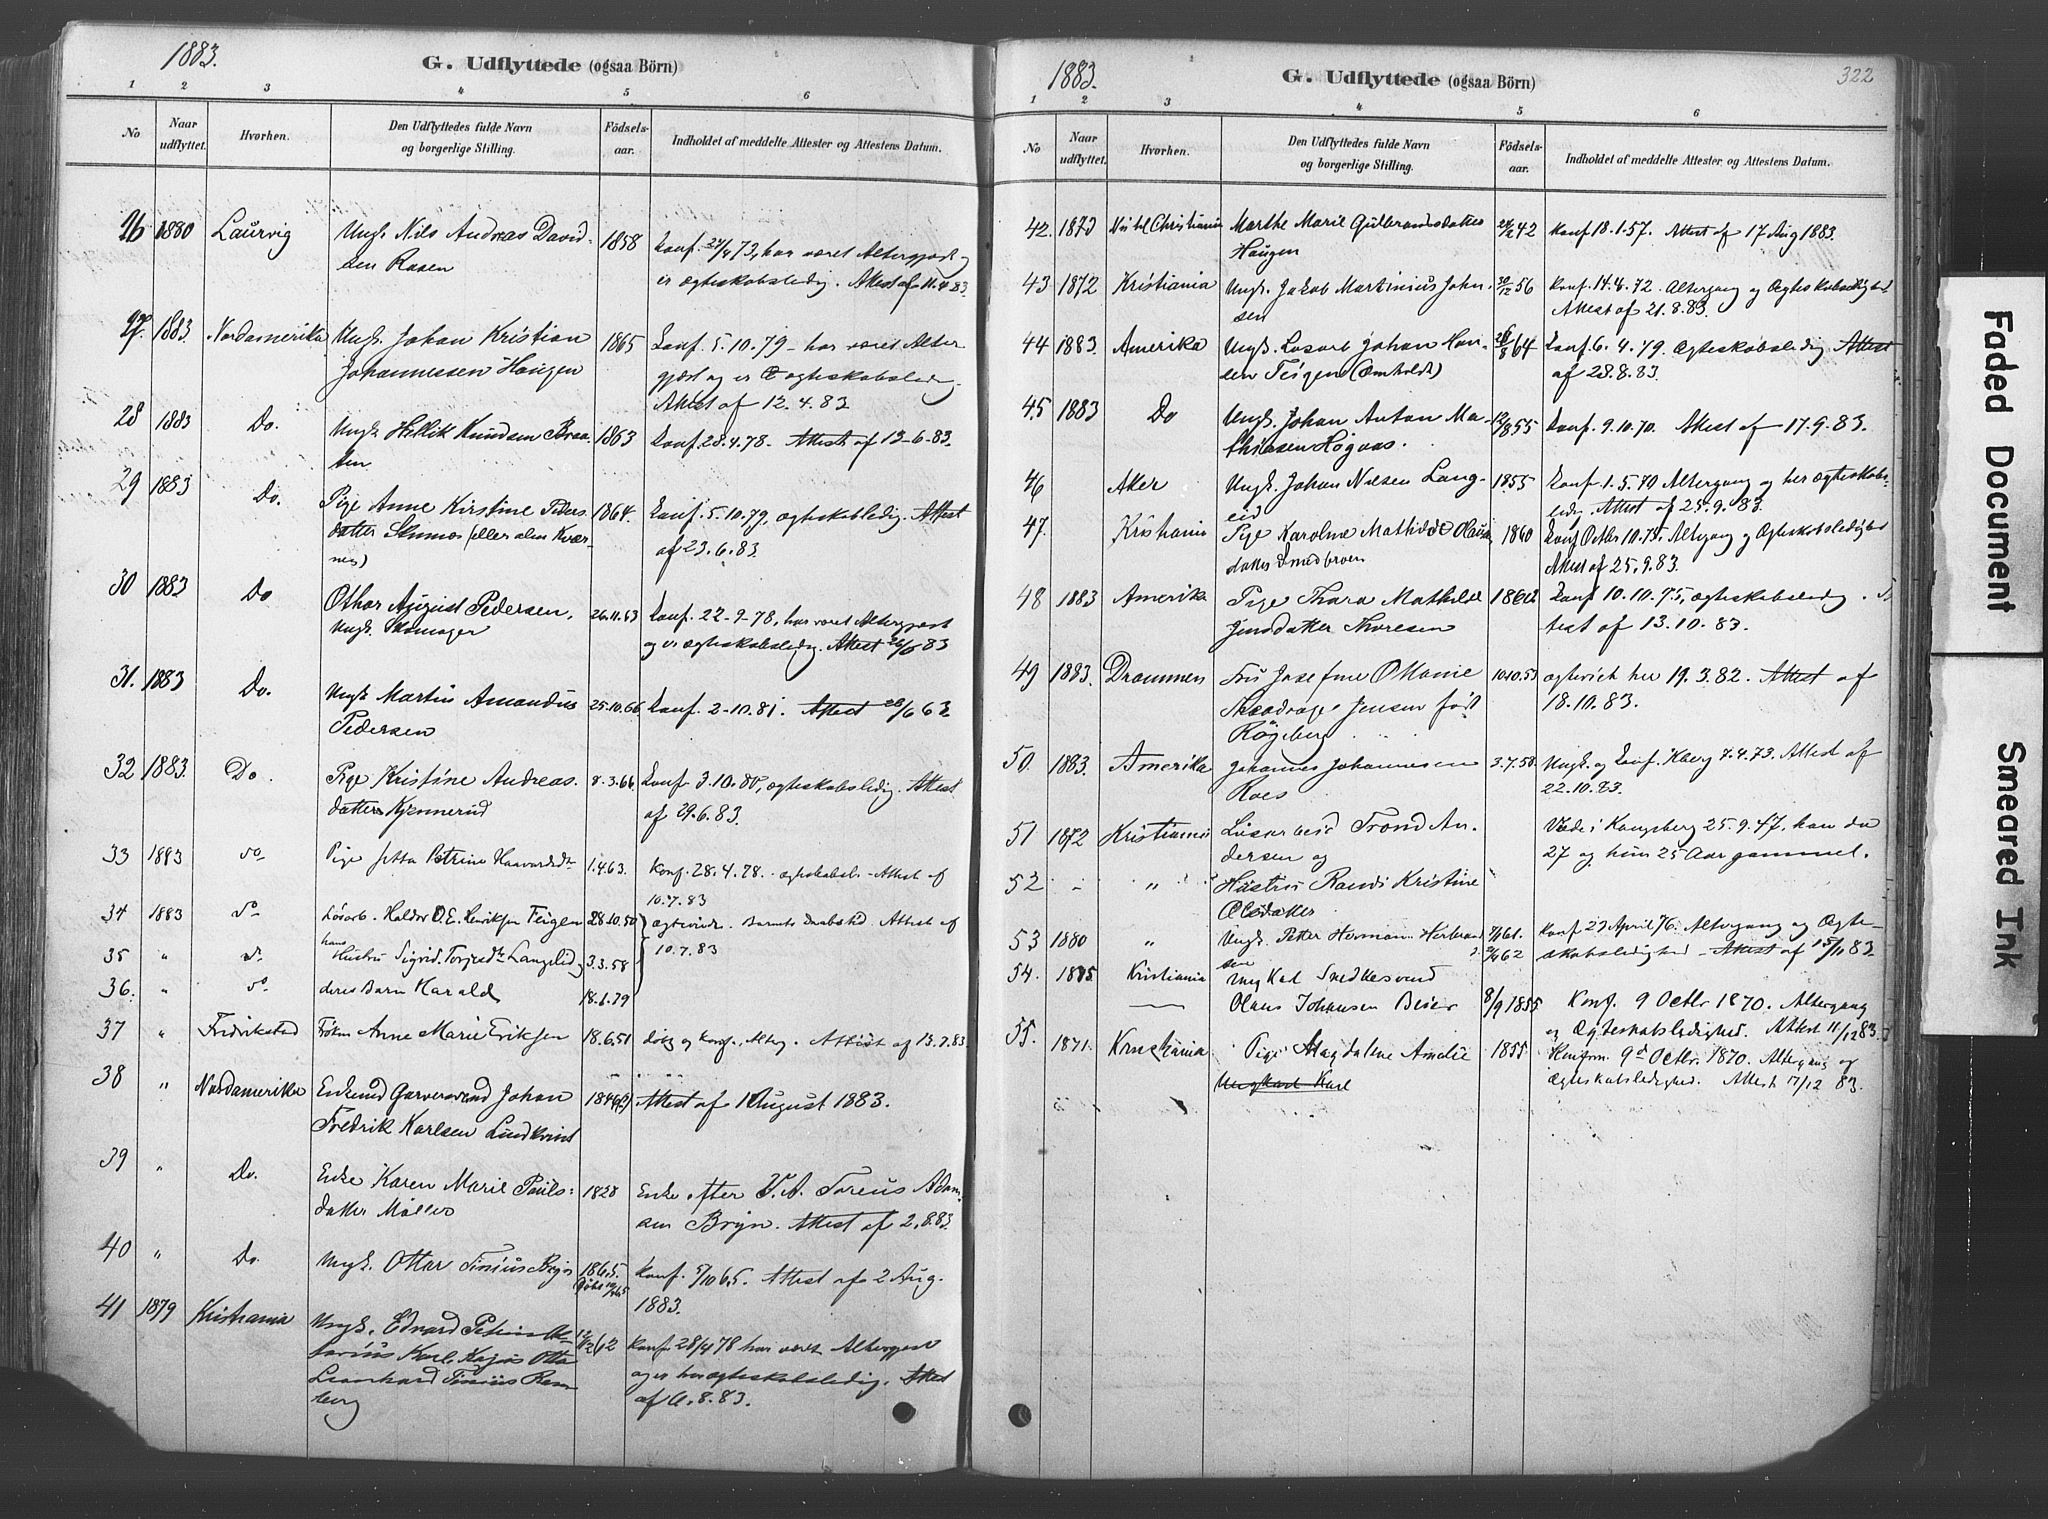 1883.
G. Udflyttede (ogsaa Börn)
1 2 3 4 5 6
No
Naar udflyttet.
Hvorhen.
Den Udflyttedes fulde Navn og borgerlige Stilling.
Födsels-aar.
Indholdet af meddelte Attester og Attestens Datum.
26 1880 Laurvig Ungk. Nils Andreas David- 1858 Konf. 27/4 73, har været Altergjæst og
sen Rasen er ægteskabsledig. Attest af 11.4.83.
27. 1883. Nordamerika Ungk. Johan Kristian 1865 Konf. 5.10.79 – har været Alter-
Johannessen Haugen gjæst og er ægteskabsledig.
Attest af 12.4.83
28 1883 Do. Ungk. Hellik Knudsen Braa- 1863 Konf. 28.4.78. Attest af 13-6.83.
ten
29 1883 Do. Pige Anne Kirstine Peders- 1864. Konf. 5.10.79, ægteskabsledig. Attest
datter Skinnes (eller alm Kvær- af 23.6.83.
nes)
30 1883 Do Othar August Pedersen, 26.11.63 Konf. 22-9-78, har været Altergjæst
Ungk. Skomager og er ægteskabsledig. Attest 26/6 83
31. 1883 Do. Ungk. Martin Amandus 25.10.66 Konf. 2-10.81. Attest 28/6 83
Pedersen
32 1883. Do. Pige Kristine Andreas- 8.3.66 Konf. 3.10.80, ægteskabsledig. Attest
datter Kjennerud af 29.6.83.
33 1883 do Pige Petrine Haavardsdtr 1.4.63. Konf. 28.4.78. Attest af
10.7.83
34 1883 do Lösarb. Halder O. E. Henriksen Teigen 28.10.50 Barnets Daabsatd Attest af
35 " do hans Hustru Sigrid Torjusdtr Langelid 3.3.58 10.7.83
36. " do deres Barn Harald 18.1.79
37 " Fredrikstad Anne Marie Eriksen 18.6.51 döbt og konf. Alterg. Attest af 13.7.83.
38 " Nordamerika Enkemd Garversvend Johan Attest af 1 August 1883.
Fredrik Karlsen Lindkvist
39 " Do. Enke Karen Marie Pouls- 1828 Enke efter Toreus Adam-
datter Möller sen Bryn. Attest af 2.8.83.
40 " Do. Ungk. Ottar Tinius Bryn 1865. Konf. Attest af 2 Aug.
1883.
41 1879 Kristiania Ungk. Edvard Petinus Konf. 28/4 78 har været Altergjæst
Karl Kajus Otto og er her ægteskabsledig. Attest
Leonhard Tinius Ram- af 6.8.83.
berg
1883.
G. Udflyttede (ogsaa Börn)
322
1 2 3 4 5 6
No
Naar udflyttet.
Hvorhen.
Den Udflyttedes fulde Navn og borgerlige Stilling.
Födsels-aar.
Indholdet af meddelte Attester og Attestens Datum.
42. 1873 Christiania Marthe Marie Gulbrandsdatter 42 Konf 18.1.57. Attest af 17 Aug 1883.
Haugen
43 1872 Kristiania Ungk. Jakob Martinius John- 30/12 56 Konf. 14.4.72. Altergang og Ægteskabsledighed.
sen Attest af 21.8.83.
44 1883. Amerika Ungk. Lösarb Johan Han- 64 Konf. 6.4.79. Ægteskabsledig. Attest
sen Teigen (Omholdt) af 28.8.83.
45. 1883 Do Ungk. Johan Anton Ma- 1855 Konf. 9.10.70. Attest af 17.9.83.
thiesen Högaas.
46 Aker Ungk. Johan Nilsen Lang- 1855 Konf. 1.5.70 Altergang og her ægteskabs-
eid ledig. Attest af 25.9.83.
47. Kristiania Pige Karoline Mathilde Olaus- 1860 Konf Octbr 10.75, Altergang og Ægteskabsledighed
datter Smedbroen Attest af 25.9.83.
48 1883 Amerika Pige Thara Mathilde Konf 10.10.75, ægteskabsledig. At-
Jensdatter Thoresen test af 13.10.83.
49 1883. Drammen Fru Josefine Jensen född 10.10.53 ægteviet her 19.3.82. Attest af
Rögeberg 18.10.83.
50. 1883. Amerika Johannes Johannesen 3.7.58 Ungk. og Konf. Kberg 4.4.73. Attest af
Roes 22.10.83.
51 1872 Kristiania Lösarbeid Trond An- Viede i Kongsberg 25.9.47, han da
dersen og 27 og hun 25 Aar gammel.
52 - " Hustru Randi Kristine
Olsdatter
53 1880 " Ungk. Petter Herman Herbrand- Konf 23 April 76. Altergang og Ægte-
sen skabsledighed – Attest af 15/11 83.
54. 1875 Kristiania Ungkarl Snedkersvend
Olaus Johansen Beier 8/9 1855 Konf. 9 Octbr 1870. Altergang
og Ægteskabsledighed. Attest 11/12 83.
55. 1871 Kristiania Pige Magdalene Amelie 1855 Konfirm. 9de Octbr. 1870. Altergang og
Ungkarl Karl Ægteskabsledighed. Attest 17/12 83.
Faded Document
Smeared Ink